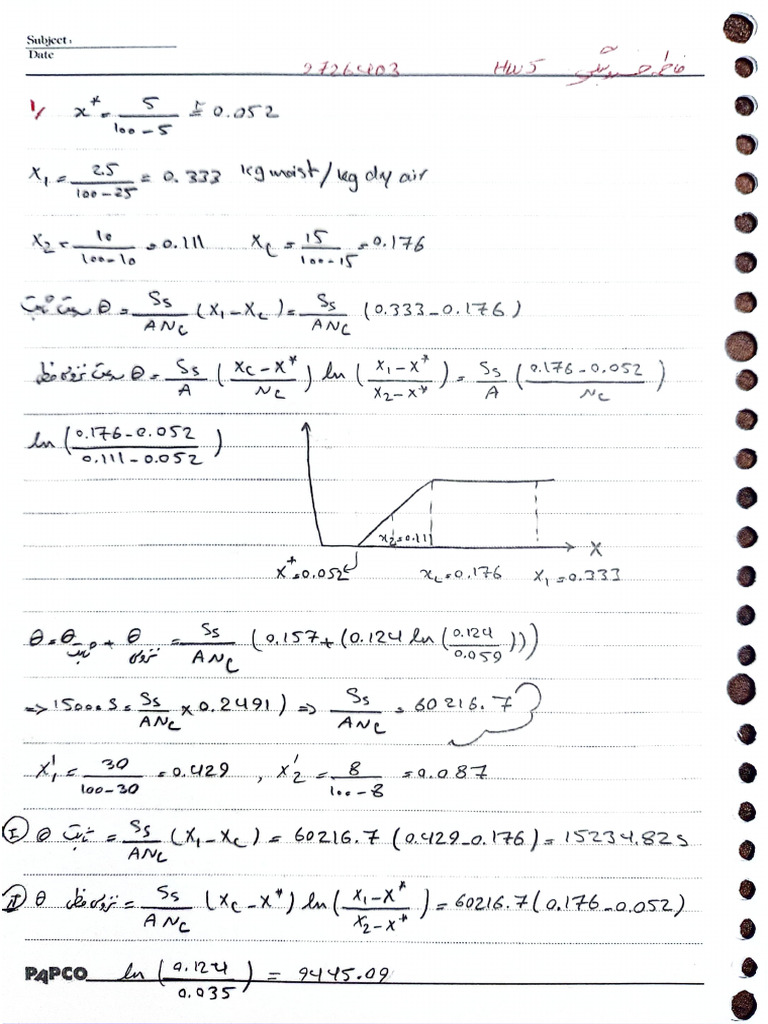 Subject:
Date
97264103 HW5 فاطمه
1/ x* = 5/(100-5) = 0.052
x₁ = 25/(100-25) = 0.333 kg moist/kg dry air
x₂ = 10/(100-10) = 0.111 x_c = 15/(100-15) = 0.176
سرعت ثابت θ = Ss/(A N_c) (x₁ - x_c) = Ss/(A N_c) (0.333 - 0.176)
سرعت نزولی خطی θ = Ss/A ((x_c - x*)/N_c) ln ((x₁ - x*)/(x₂ - x*)) = Ss/A ((0.176 - 0.052)/N_c)
ln ((0.176 - 0.052)/(0.111 - 0.052))
x₂=0.111
X
x* = 0.052 x_c = 0.176 x₁ = 0.333
θ = θ ثابت + θ نزولی = Ss/(A N_c) (0.157 + (0.124 ln (0.124/0.059)))
=> 15000 s = Ss/(A N_c) × 0.2491) => Ss/(A N_c) = 60216.7
x₁' = 30/(100-30) = 0.429 , x₂' = 8/(100-8) = 0.087
I θ ثابت = Ss/(A N_c) (x₁ - x_c) = 60216.7 (0.429 - 0.176) = 15234.82 s
II θ نزولی خطی = Ss/(A N_c) (x_c - x*) ln ((x₁ - x*)/(x₂ - x*)) = 60216.7 (0.176 - 0.052)
PAPCO ln (0.124/0.035) = 9445.09